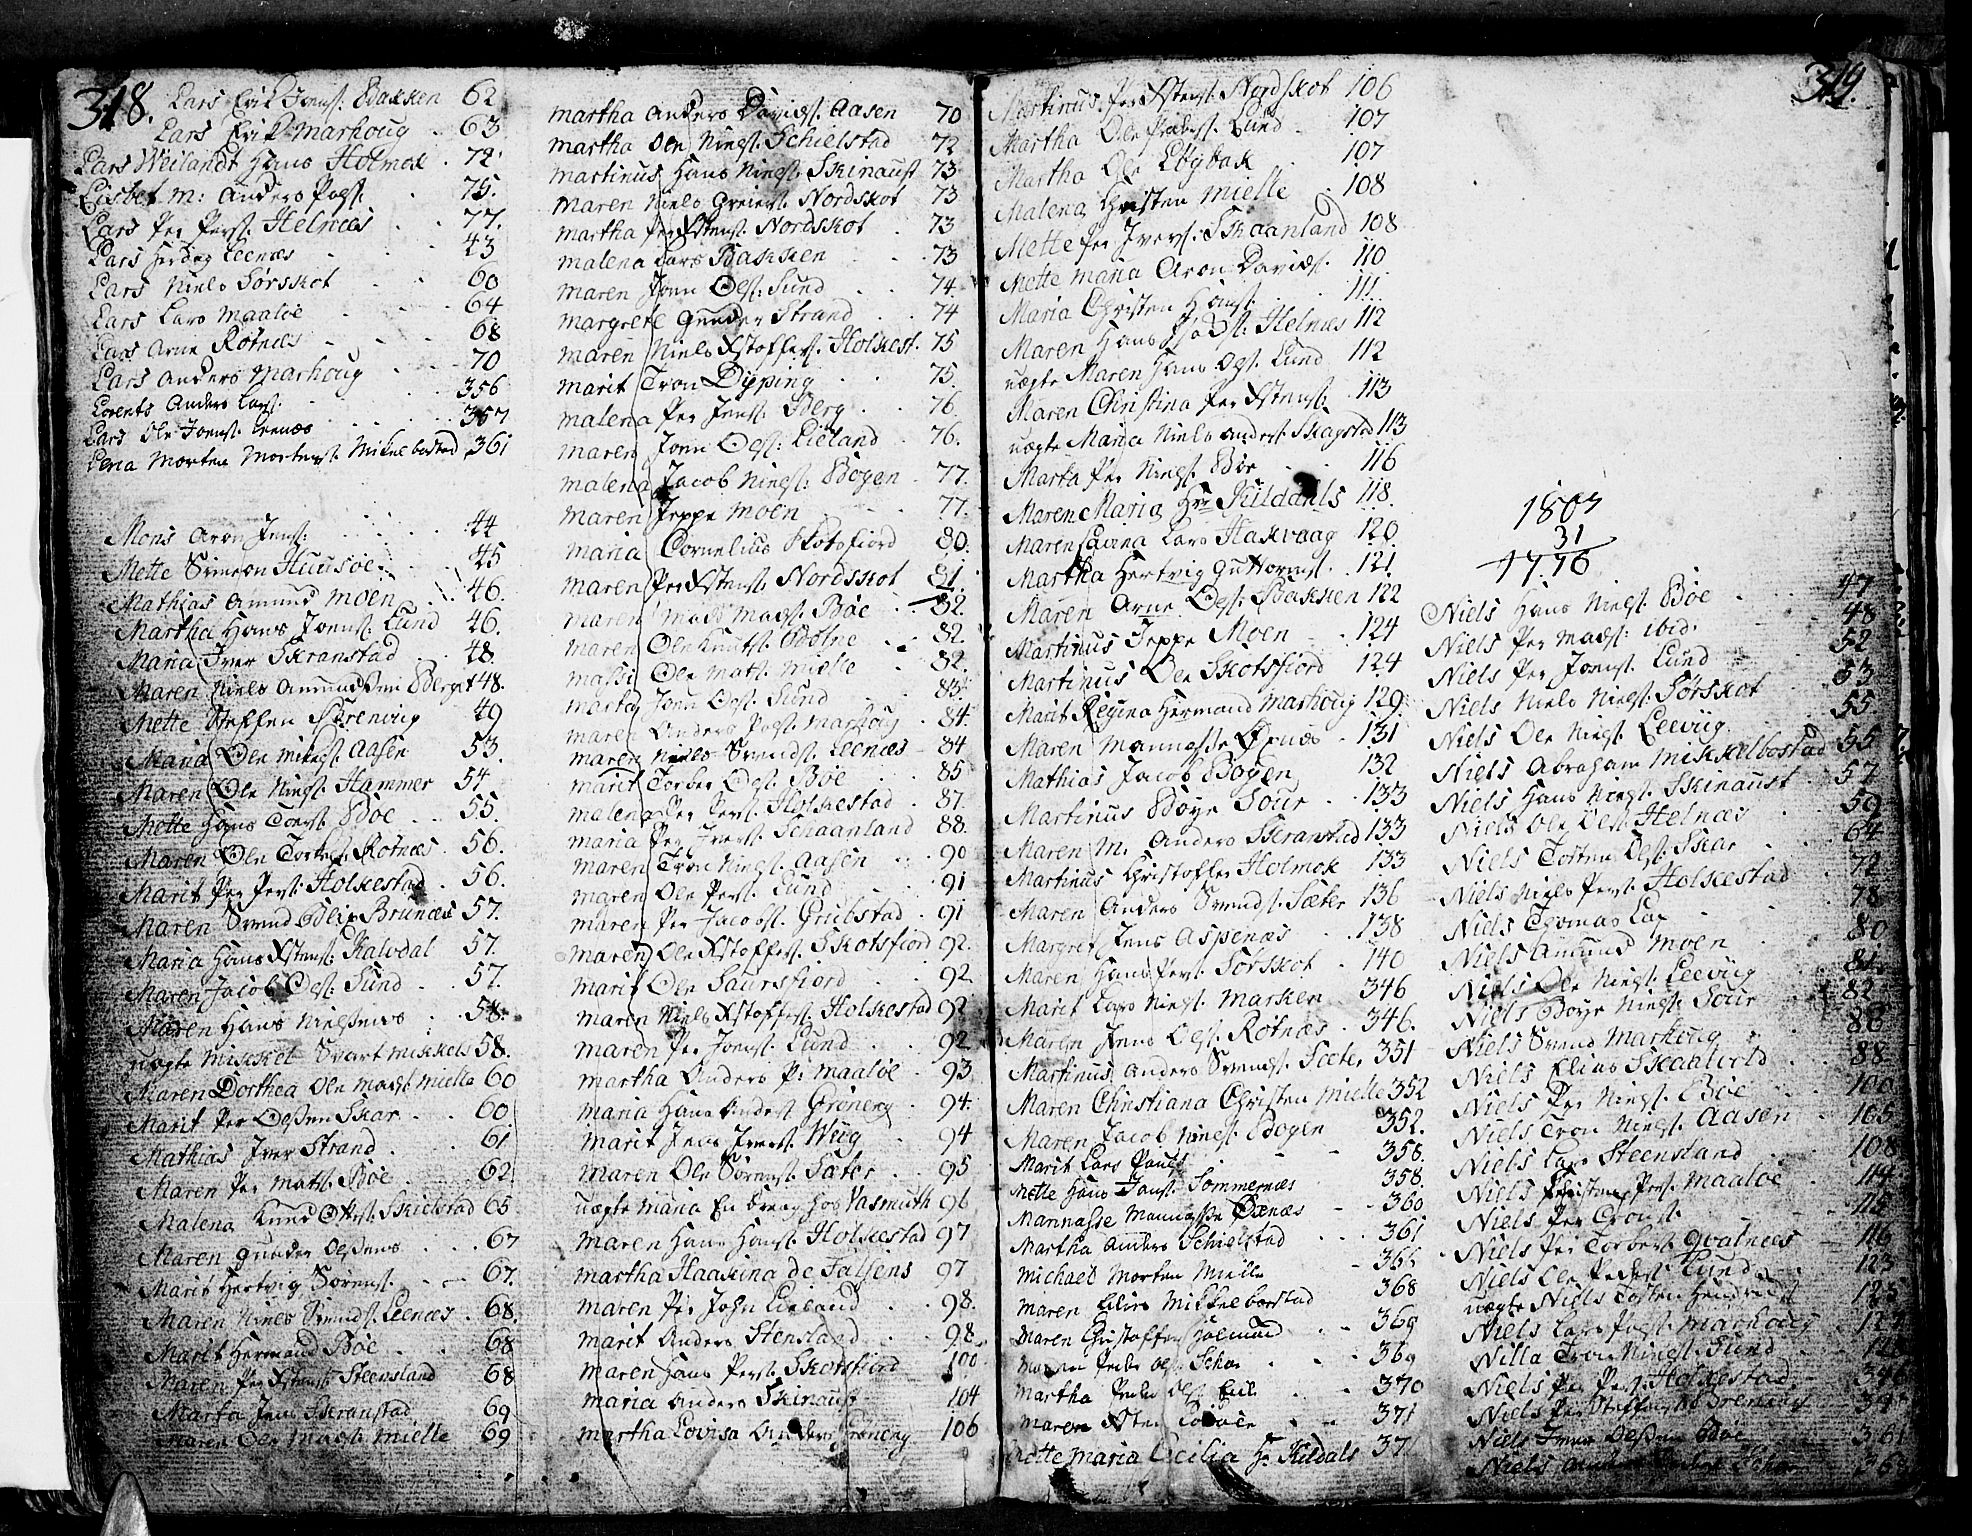 318.
Lars Erik Jons: Backken 62
Lars Erik Marhoug 63
Lars Weilandt Hans Holmok 72
Lisbet M: Anders Pas: 75.
Lars Per Pers: Helnæs 77.
Lars Leenæs 43
Lars Niels Sørskot 60
Lars Lars Maaløe 64
Lars Arne Røtnæs 68
Lars Anders Marhoug 70
Lorents Anders Lars: 356
Lars Ole Joens: Leenæs 357
Lena Morten Mortens: Mikelbostad 361
Mons Aron Jens: 44
Mette Simeon Huusøe 45
Mathias Amund Moen 46
Martha Hans Joens: Lund 46.
Maria Iver Skranstad 48.
Maren Niels Amundsen Berget 48.
Mette Steffen Børenvig 49
Maria Ole Mikels: Aasen 53.
Maren Ole Niels: Hammer 54
Mette Hans Toers: Bøe 55.
Maren Ole Torbers: Røtnæs 56.
Marit Per Pers: Holkestad 56.
Maren Svend Blix Brunæs 57.
Maria Hans Xstens: Kalvdal 57.
Maren Jacob Ols: Sund 57.
Maren Hans Nielsens 58.
uægte Mikkel Svart Mikkels 58.
Maren Dorthea Ole Mads: Mielle 60
Marit Per Olssen Skar 60
Mathias Iver Strand 61.
Maren Per Mats: Bøe 62.
Malena Knud Ols: Skielstad 65
Maren Gunder Olssens 67
Marit Hertvig Sørens: 67.
Maren Niels Svends: Leenæs 68.
Marit Hermand Bøe 68
Maren Per Xstens: Steensland 68
Marta Jens Skranstad 69
Maren Ole Mads: Mielle 69
Martha Anders Davids: Aasen 70
Martha Ole Niels: Schielstad 72
Martinus Hans Niels: Skinaust 73
Maren Niels Greiers: Nordskot 73
Martha Per Xstens: Nordskot 73
Malena Lars Backken 73
Maren Jonn Ols: Sund 74
Margrete Gunder Strand 74
Maren Niels Xstoffers: Holkest. 75
Marit Tron Dypping 75.
Malena Per Jens: Berg 76
Maren Jonn Ols: Lieland 76.
Malena Jacob Niels: Bogen 77.
Maren Jeppe Moen 77.
Maria Cornelius Skotsfiord 80.
Maren Per Xstens: Nordskot 81.
Maren Mads Mads: Bøe 82.
Maren Ole Knuts: Botne 82.
Massi Ole Mats: Mielle 82.
Marta Jonn Ols: Sund 83.
Maren Anders Pers: Marhoug 84
Maren Niels Svends: Leenæs 84
Marit Torber Ols: Bøe 85
Malena Per Pers: Holkestad 87.
Maria Per Ivers: Schaanland 88.
Maren Tron Niels: Aasen 90
Maren Ole Pers: Lund 91
Maren Per Jacobs: Gribstad 91
Maren Ole Xstoffers: Skotsfiord 92.
Marit Ole Saursfiord 92.
Maren Niels Xstoffers: Holkestad 92
Maren Per Joens: Lund 92
Martha Anders P: Maaløe 93
Maria Hans Anders: Grønerg 94.
Marit Jens Ivers: Wiig 94
Maren Ole Sørens: Sæter 95
uægte Maria En dreng hos Vasmuth 96
Maren Hans Hans: Holkestad 97
Martha Haakina de Falsens 97
Maren Per John Lieland 98.
Marit Anders Stensland 98.
Maren Hans Pers: Skotsfiord 100
Maria Anders Skinaust 104
Martha Lovisa Anders Grønerg 106
319.
Martinus Per Xstens: Nordskot 106
Martha Ole Peders: Lund 107
Martha Ole Ebybak 107
Malena Christen Mielle 108
Mette Per Ivers: Skaanland 108
Mette Maria Aron Davids: 110
Maria Christen Hans: 111.
Maren Hans Helnæs 112
uægte Maren Hans Ols: Lund 112
Maren Christina Per Xstens: 113
uægte Maria Niels Anders: Skagstad 113
Marta Per Niels: Bøe 116
Maren Maria Hr: Kildahls 118.
Maren Lavina Lars Haskvaag 120
Martha Hertvig Guttorms: 121
Maren Arne Ols: Backken 122
Martinus Jeppe Moen 124
Martinus Ole Skotsfiord 124
Marit Regina Hermand Marhoug 129
Maren Mannasse Øxnæs 131
Mathias Jacob Bogen 132
Martinus Bøye Sour 133
Maren M. Anders Skranstad 133
Martinus Christoffer Holmok 133
Maren Anders Svends: Sæter 136
Margret Jens Aspenæs 138
Maren Hans Pers: Sørskot 140
Marit Lars Niels: Marken 346
Maren Jens Ols: Røtnæs 346.
Martinus Anders Svends: Sæter 351
Maren Christiana Christen Mielle 352
Maren Jacob Niels: Bogen 352.
Marit Lars Pauls 358.
Mette Hans Jons: Sommernæs 358.
Mannasse Mannasse Øxnæs 360
Martha Anders Schielstad 361
Michael Morten Mielle 366
Maren Elias Mikkelborstad 368
Maren Christoffer Holmund 369
Maren Peder Ols: Schar 369
Martha Peder Ols: 370
Maren 371
Mette Maria Cecilia Hr: Kildals 37
1807
31
1776
Niels Hans Niels: Bøe 47
Niels Per Mads: ibid: 48
Niels Per Joens: Lund 52
Niels Niels Niels: Sørskot 53
Niels Ole Niels: Leeviig 55
Niels Abraham Mikkelbostad 55
Niels Hans Niels: Skinaust 57
Niels Ole Ols: Helnæs 59
Niels Torsten Ols: Skar 64
Niels Niels Pers: Holkestad 72
Niels Thomas Lax 78
Niels Amund Moen 80
Niels Ole Niels: Leeviig 81
Niels Bøye Niels: Sour 82
Niels Svend Marhoug 86
Niels Elias Skaalvold 88
Niels Per Niels: Bøe 100
Niels Tron Niels: Aasen 105
Niels Lars Steensland 108
Niels Christen Pers: Maaløe 114
Niels Per Trons: 115
Niels Per Torbers: Qvalnæs 116
Niels Ole Peders: Lund 123
uægte Niels Torsten Hendriks: 125
Niels Lars Pers: Marhoug 127
Nilla Tron Niels: Sund
Niels Per Pers: Holkestad 346
Niels Per Steffens: Børenvig
Niels Iver Olssen Bøe 361
Niels Anders Schar 36